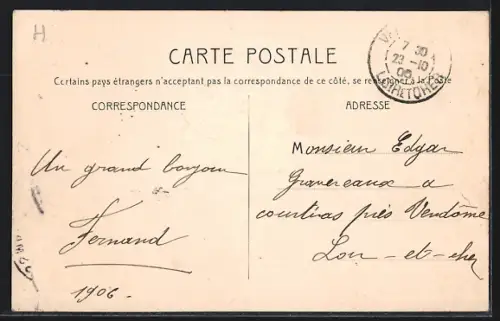 H
CARTE POSTALE
Certains pays étrangers n'acceptant pas la correspondance de ce côté, se renseigner à la Poste
CORRESPONDANCE
Un grand bonjour
Fernand
1906
ADRESSE
Monsieur Edgar
Gravereaux a
courtiras près Vendôme
Loir-et-cher
7 30
23-10
06
LOIR ET CHER